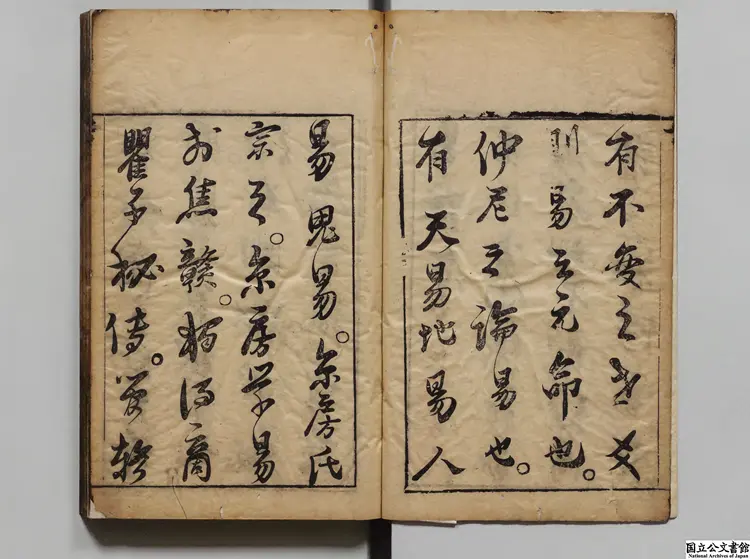 有不變之爻
則易之元命也。
仲尼之論易也。
有天易地易人
易鬼易。京房氏
宗之。京房學易
於焦贛。獨得商
瞿子秘傳。管輅
国立公文書館
National Archives of Japan